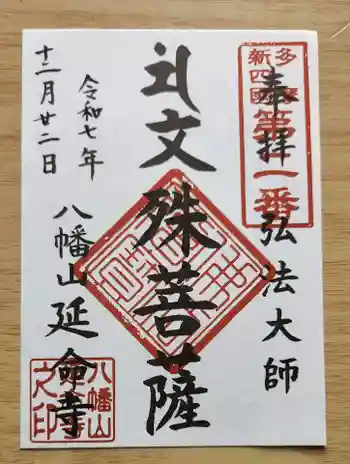 奉拝
弘法大師
多摩新四國
第一番
文殊菩薩
令和七年
十二月廿二日
八幡山延命寺
八幡山
之印